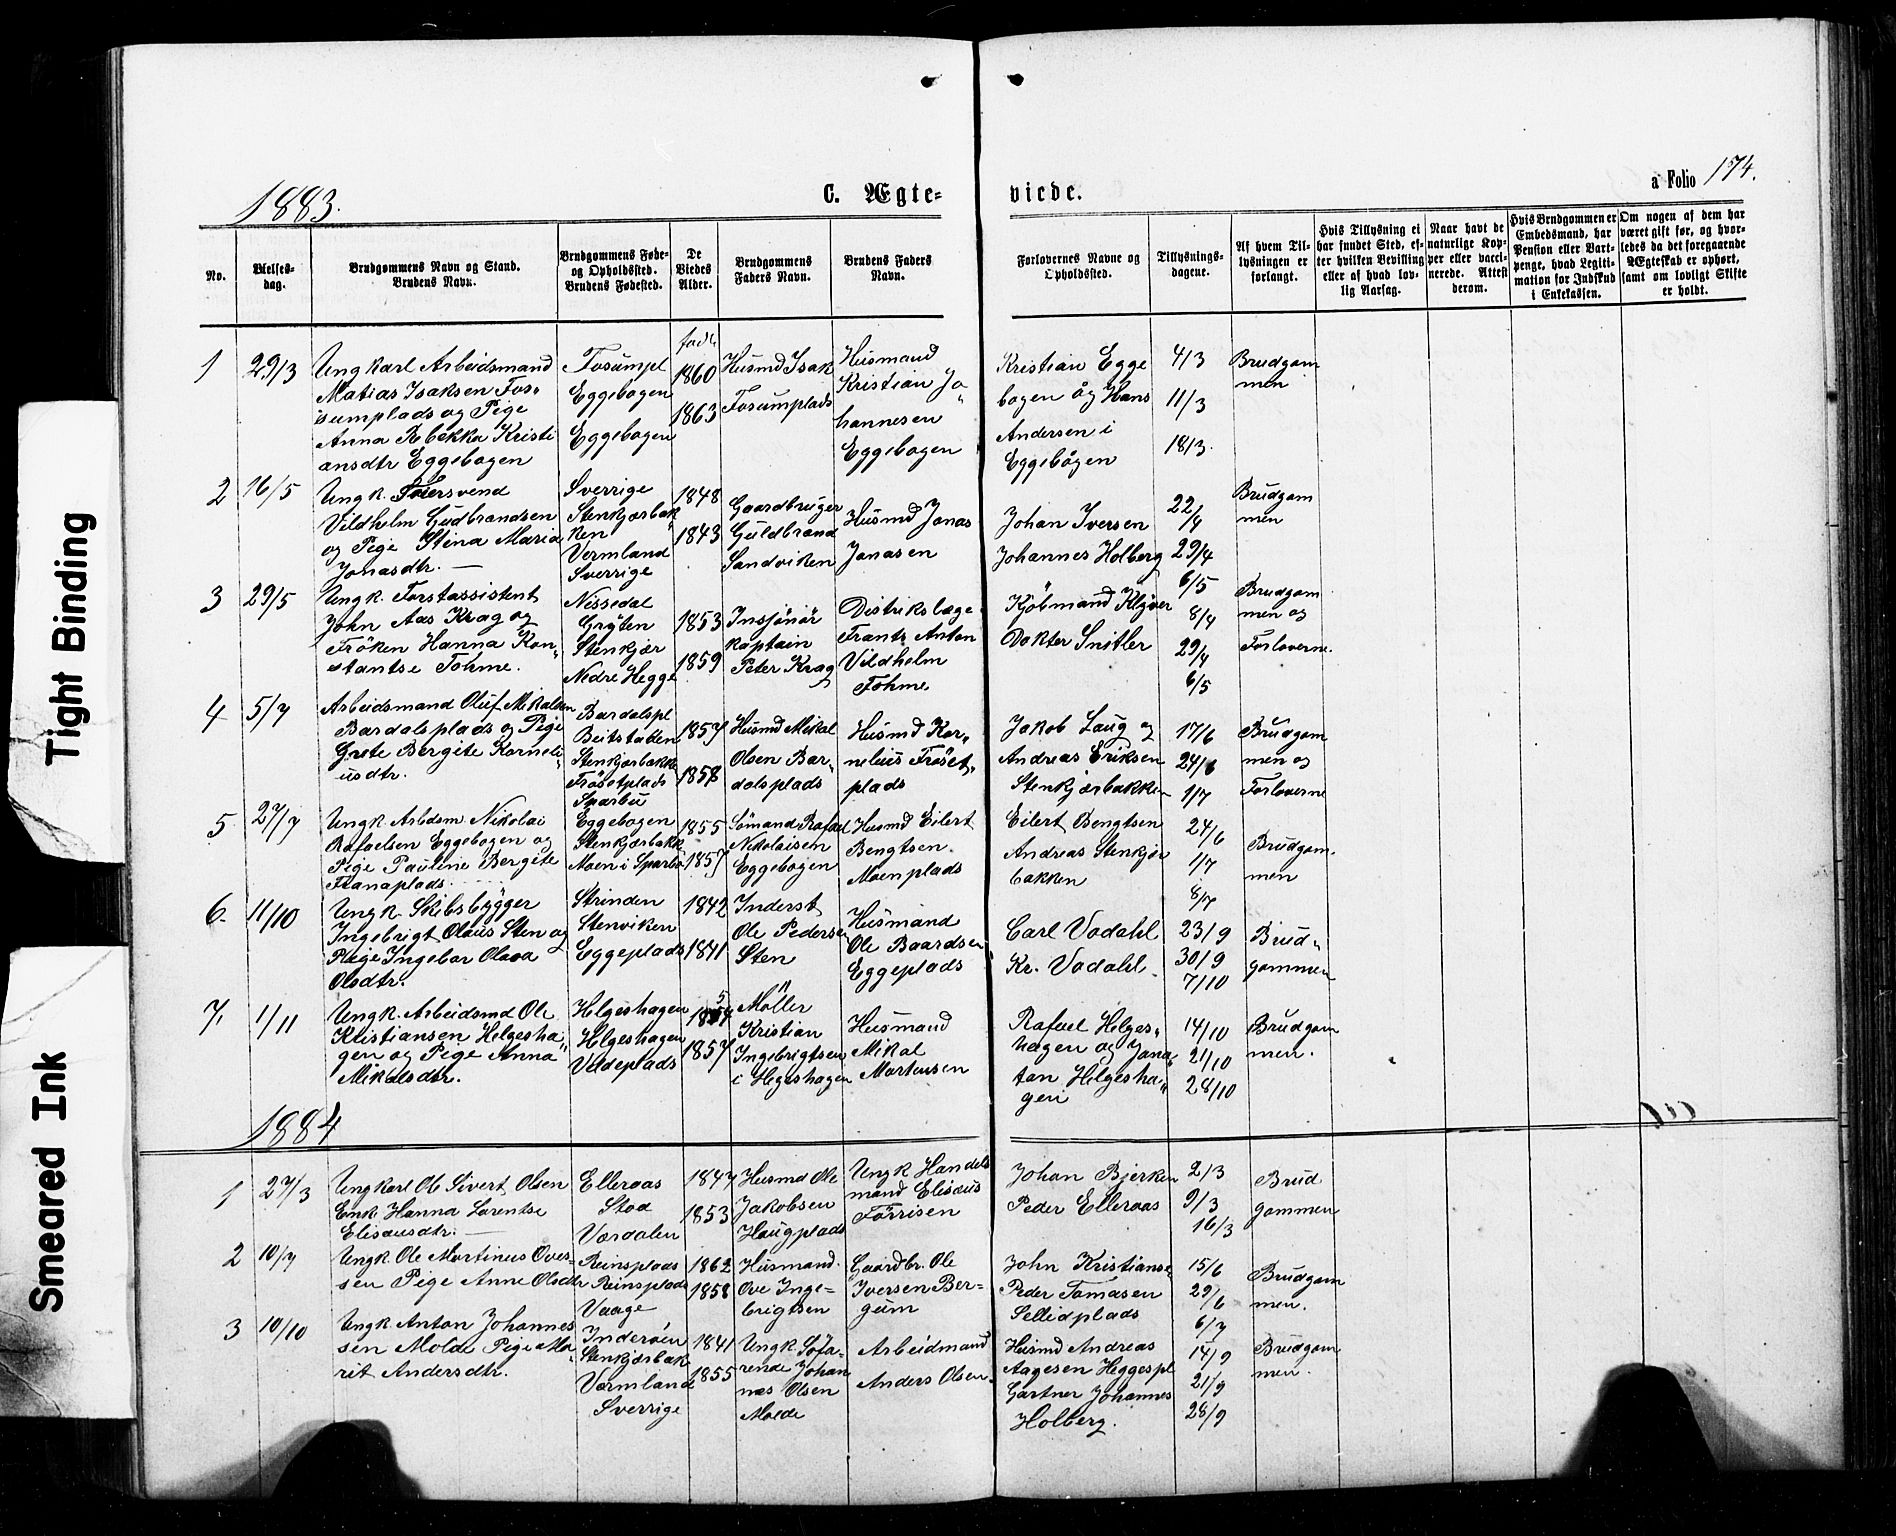 Tight Binding
Smeared Ink
1883.
C. Ægte-
viede.
a Folio 174.
No.
Vielses-
dag.
Brudgommens Navn og Stand.
Brudens Navn.
Brudgommens Føde-
og Opholdssted.
Brudens Fødested.
De
Viedes
Alder.
Brudgommens
Faders Navn.
Brudens Faders
Navn.
Forlovernes Navne og
Opholdssted.
Tillysnings-
dagene.
Af hvem Til-
lysningen er
forlangt.
Hvis Tillysning ei
har fundet Sted, ef-
ter hvilken Bevilling
eller af hvad lov-
lig Aarsag.
Naar havt de
naturlige Kop-
per eller vacci-
nerede. Attest
derom.
Hvis Brudgommen er
Embedsmand, har
Pension eller Vart-
penge, hvad Legiti-
mation for Indskud
i Enkekassen.
Om nogen af dem har
været gift før, og hvor-
ledes da det foregaaende
Ægteskab er ophørt,
samt om lovligt Skifte
er holdt.
1
29/3
Ungkarl Arbeidsmand
Matias Isaksen Fos-
sumplads og Pige
Anna Rebekka Kristi
ansdtr Eggebogen
Fosumpl
Eggebogen
Eggebogen
født
1860
1863
Husmd Isak
Fosumplads
Husmand
Kristian Jo
hannesen
Eggebogen
Kristian Egge
bogen og Hans
Andersen i
Eggebogen
4/3
11/3
18/3.
Brudgom
men
2
16/5
Ungk. Feiersvend
Vildhelm Gudbrandsen
og Pige Stina Maria
Jonasdtr.
Sverrige
Stenkjærbak
ken
Vermland
Sverrige
1848
1843
Gaardbruger
Guldbrand
Sandviken
Husmd Jonas
Jonasen
Johan Iversen
Johannes Holberg
22/4
29/4
6/5
Brudgom
men
3
29/5
Ungk. Forstassistent
John Aas Krag og
Frøken Hanna Kon-
stantse Fohme.
Nissedal
Gryten
Stenkjær
Nedre Hegge
1853
1859
Insjønør
kaptain
Peter Krag
Distrikslæge
Frants Anton
Vildhelm
Fohme
Kjøbmand Klyver
Dokter Snitler
8/4
29/4
6/5
Brudgom
men og
Forloverne.
4
5/7
Arbeidsmand Oluf Mikalsen
Bardalsplads og Pige
Grete Bergite Korneli-
usdtr.
Bardalspl
Beitstaden
Stenkjærbakk
Frøsetplads
Sparbu
1857
1858
Husmd Mikal
Olsen Bar-
dalsplads
Husmd Kor-
nelius Frøset-
plads
Jakob Laug og
Andreas Eriksen
Stenkjærbakken
17/6
24/6
1/7
Brudgom
men og
Forloverne
5
27/7
Ungk Arbdsm Nikolai
Rafaelsen Eggebogen og
Pige Pauline Bergite
Eggebogen
Stenkjærbakk
Moen i Sparbu
1855
1857
Sømand Rafael
Nikolaisen
Eggebogen
Husmd Eilert
Bengtsen
Moenplads
Eilert Bengtsen
Andreas Stenkjær
bakken
24/6
1/7
8/7
Brudgom-
men
6.
11/10
Ungk. Skibsbygger
Ingebrigt Olaus Sten og
Pige Ingebor Olava
Olsdtr.
Strinden
Stenviken
Eggeplads
1842
1841
Inderst
Ole Pedersen
Sten
Husmand
Ole Baardsen
Eggeplads
Carl Vadahl
Kr. Vadahl
23/9
30/9
7/10
Brud-
gommen
7.
1/11
Ungk. Arbeidsmd Ole
Kristiansen Helgesha-
gen og Pige Anna
Mikalsdtr.
Helgeshagen
Helgeshagen
Veldeplads
1857
Møller
Kristian
Ingebrigtsen
i Hegeshagen
Husmand
Mikal
Martensen
Rafael Helges-
hagen og Jona-
tan Helgesha-
gen
14/10
21/10
28/10
Brudgom
men.
1884
1
27/3
Ungkarl Ole Sivert Olsen
Enk. Hanna Lorentse
Elisæusdtr.
Elleraas
Stod
Værdalen
1847
1853
Husmd Ole
Jakobsen
Haugplads
Ungk Handels
mand Elisæus
Førrisen
Johan Bjerken
Peder Elleraas
2/3
9/3
16/3
Brud
gommen
2
10/7
Ungk Ole Martinus Oves-
sen Pige Anne Olsdtr
Reinsplads
Reinsplads
Vaage
1862
1858
Husmand
Ove Inge-
brigtsen
Gaardbr. Ole
Iversen Ber-
gum
John Kristianse
Peder Tomasen
Sellidplads
15/6
29/6
6/7
Brudgom
men.
3
10/10
Ungk Anton Johannes
sen Molde Pige Ma-
rit Andersdtr.
Inderøen
Stenkjærbak
Værmland
Sverrige
1841
1855
Ungk Søfa-
rende Johan
nes Olsen
Molde
Arbeidmand
Anders Olsen
Husmd Andreas
Aagesen Heggespl
Gartner Johannes
Holberg.
14/9
21/9
28/9
Brudgom
men.